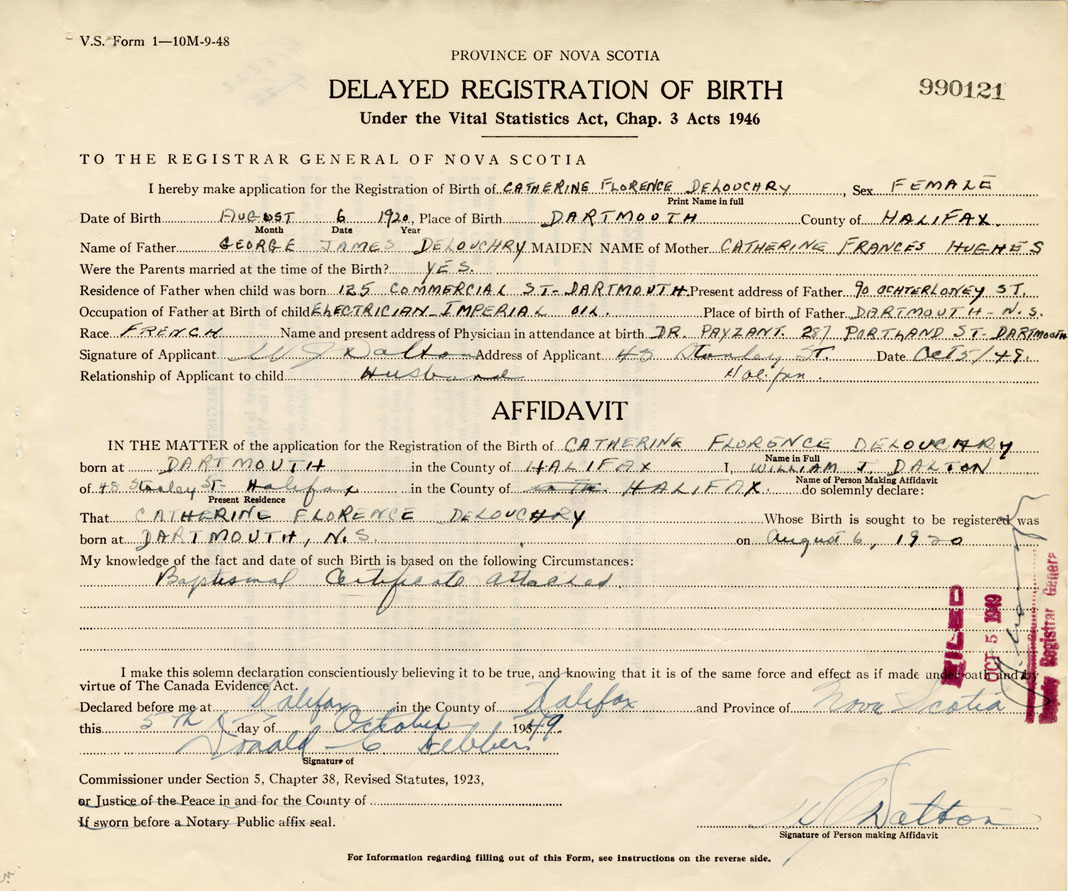 V.S. Form 1—10M-9-48
PROVINCE OF NOVA SCOTIA
DELAYED REGISTRATION OF BIRTH
990121
Under the Vital Statistics Act, Chap. 3 Acts 1946
TO THE REGISTRAR GENERAL OF NOVA SCOTIA
I hereby make application for the Registration of Birth of CATHERINE FLORENCE DELOUCHRY, Sex FEMALE
Print Name in full
Date of Birth AUGUST 6 1920, Place of Birth DARTMOUTH County of HALIFAX.
Month Date Year
Name of Father GEORGE JAMES DELOUCHRY MAIDEN NAME of Mother CATHERINE FRANCES HUGHES
Were the Parents married at the time of the Birth? YES.
Residence of Father when child was born 125 COMMERCIAL ST- DARTMOUTH. Present address of Father 90 OCHTERLONEY ST.
Occupation of Father at Birth of child ELECTRICIAN-IMPERIAL OIL. Place of birth of Father DARTMOUTH-N.S.
Race FRENCH Name and present address of Physician in attendance at birth DR. PAYZANT. 287 PORTLAND ST-DARTMOUTH
Signature of Applicant W J Dalton Address of Applicant 48 Stanley St. Date Oct 5/49.
Relationship of Applicant to child Husband Halifax.
AFFIDAVIT
IN THE MATTER of the application for the Registration of the Birth of CATHERINE FLORENCE DELOUCHRY
Name in Full
born at DARTMOUTH in the County of HALIFAX I, WILLIAM J. DALTON
Name of Person Making Affidavit
of 48 Stanley St- Halifax in the County of HALIFAX. do solemnly declare:
Present Residence
That CATHERINE FLORENCE DELOUCHRY Whose Birth is sought to be registered was
born at DARTMOUTH, N.S. on August 6, 1920
My knowledge of the fact and date of such Birth is based on the following Circumstances:
Baptismal Certificate attached.
FILED
OCT 5 1949
Deputy Registrar General
I make this solemn declaration conscientiously believing it to be true, and knowing that it is of the same force and effect as if made under oath and by
virtue of The Canada Evidence Act.
Declared before me at Halifax in the County of Halifax and Province of Nova Scotia
this 5th day of October 1949
Donald C
Signature of
Commissioner under Section 5, Chapter 38, Revised Statutes, 1923,
or Justice of the Peace in and for the County of
If sworn before a Notary Public affix seal.
W J Dalton
Signature of Person making Affidavit
For Information regarding filling out of this Form, see instructions on the reverse side.